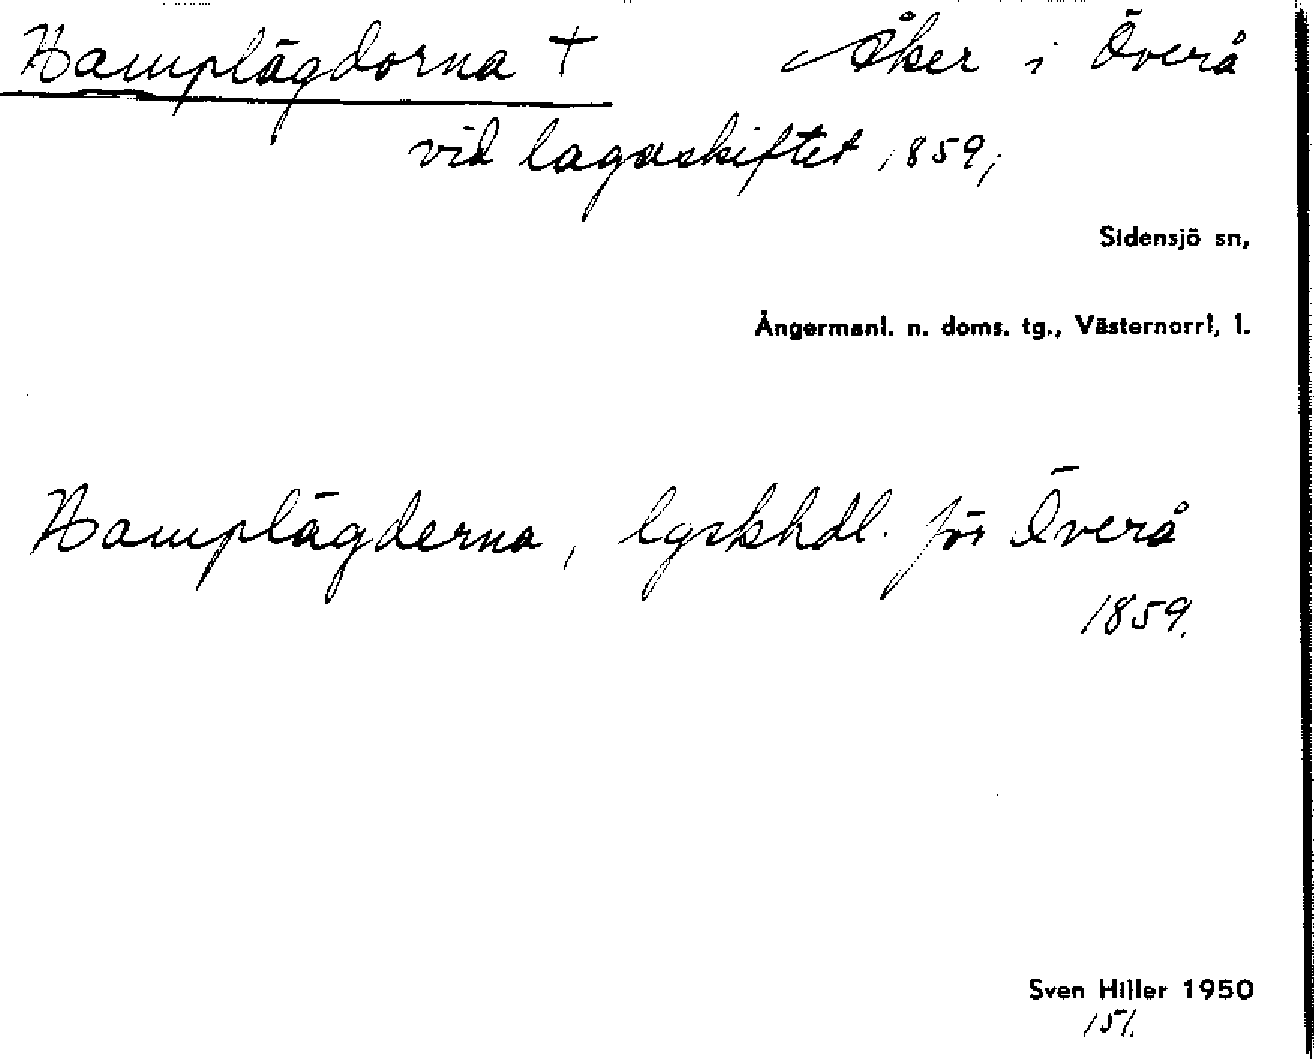 Hamplägdorna † Åker i Överå
vid lagaskiftet 1859,
Sidensjö sn,
Ångermanl. n. doms. tg., Västernorrl, l.
Hamplägderna, lgskhdl. för Överå
1859.
Sven Hiller 1950
151.